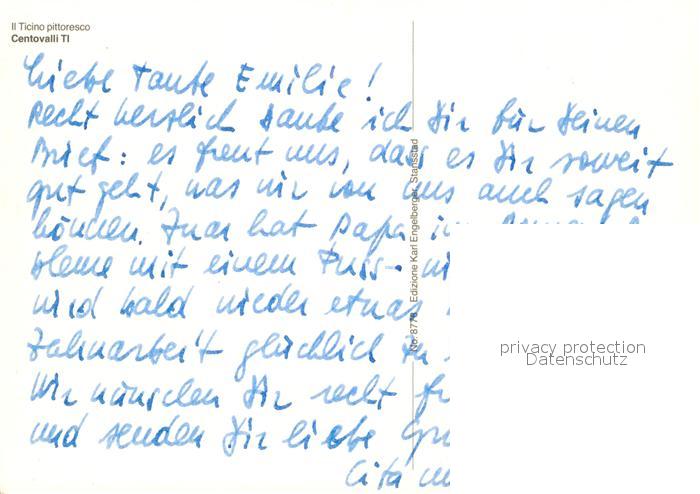 Il Ticino pittoresco
Centovalli TI
Liebe Tante Emilie!
Recht herzlich danke ich Dir für Deinen
Brief: es freut uns, dass es Dir soweit
gut geht, was wir von uns auch sagen
können. Zwar hat Papa im
bleme mit einem Fuss-
wird bald wieder etwas
Zahnarbeit glücklich
Wir wünschen Dir recht
und senden Dir liebe
Cita
No. 8778 Edizione Karl Engelberger, Stansstad
privacy protection
Datenschutz